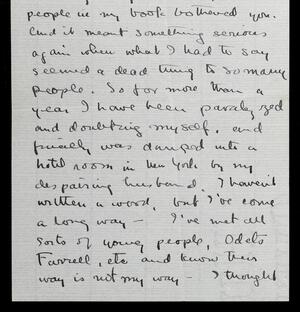 people in my book bothered you.
And it meant something serious
again when what I had to say
seemed a dead thing to so many
people. So for more than a
year I have been paralyzed
and doubting myself, and
finally was dumped into a
hotel room in New York by my
despairing husband. I haven't
written a word, but I've come
a long way — I've met all
sorts of young people, Odets
Farrell, etc and know their
way is not my way — I thought